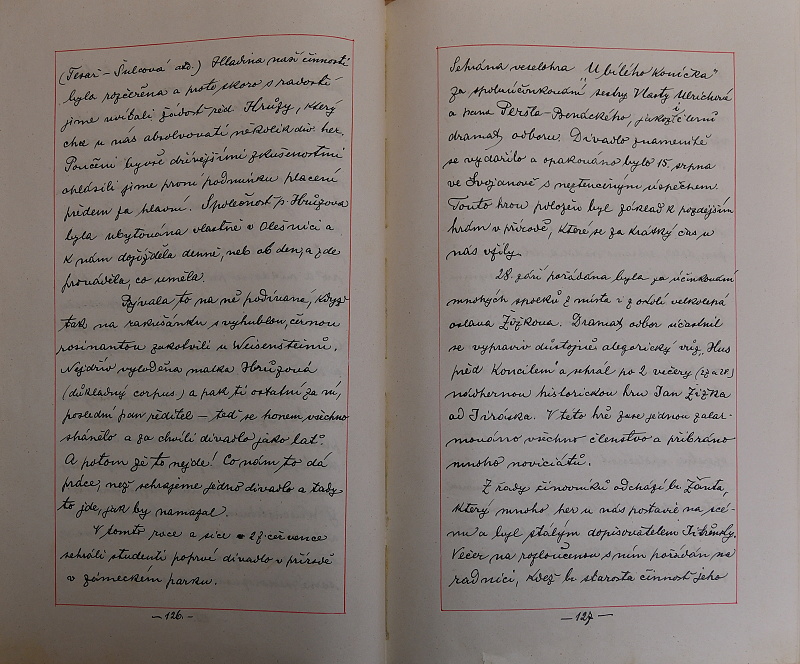 (Tesař – Šulcová atd.) Hladina naší činnosti
byla rozčeřena a proto skoro s radostí
jsme uvítali žádost řed. Hrůzy, který
chce u nás absolvovati několik div. her.
Poučeni byvše dřívějšími zkušenostmi
ohlásili jsme první podmínku placení
předem za hlavní. Společnost p. Hrůzova
byla ubytována vlastně v Olešnici a
k nám dojížděla denně, neb ob den, a zde
prováděla, co uměla.
Bývala to na ně podívaná, když
tak na rakušánku s vyhublou, černou
rosinantou zakotvili u Weisensteinů.
Nejdřív vyloděna matka Hrůzová
(důkladný corpus) a pak ti ostatní za ní,
poslední pan ředitel – teď se honem všechno
shánělo a za chvíli divadlo jako lať.
A potom že to nejde! Co nám to dá
práce, než sehrajeme jedno divadlo a tady
to jde, jak by namazal.
V tomto roce a sice 27. července
sehráli studenti poprvé divadlo v přírodě
v zámeckém parku.
– 126. –
Sehrána veselohra „U bílého koníčka"
za spoluúčinkování sestry Vlasty Ulrichové
a pana Peršla-Benáckého, jakož i členů
dramat. odboru. Divadlo znamenitě
se vydařilo a opakováno bylo 15. srpna
ve Svojanově s neztenčeným úspěchem.
Touto hrou položen byl základ k pozdějším
hrám v přírodě, které se za krátký čas u
nás vžily.
28. září pořádána byla za účinkování
mnohých spolků z místa i z okolí velkolepá
oslava Žižkova. Dramat. odbor účastnil
se vypraviv důstojně alegorický vůz „Hus
před Koncilem a sehrál po 2 večery (27. a 28.)
nádhernou historickou hru Jan Žižka
od Jiráska. V této hře zase jednou zalar-
mováno všechno členstvo a přibráno
mnoho noviciátů.
Z řady činovníků odchází br. Žanta,
který mnoho her u nás postavil na scé-
nu a byl stálým dopisovatelem Jitřenky.
Večer na rozloučenou s ním pořádán na
radnici, kdež br. starosta činnost jeho
– 127 –